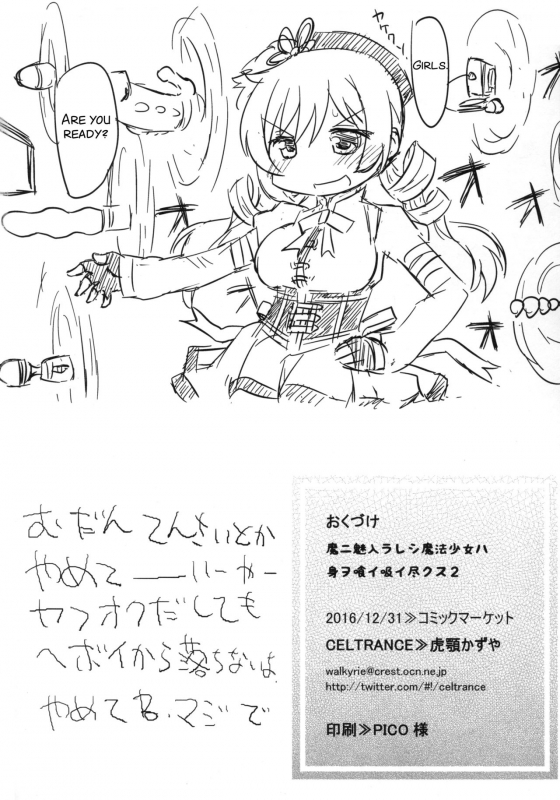 ヤケクソ
GIRLS.
ARE YOU
READY?
むだん てんさいとか
やめて――
ヤフオクだしても
ヘボイから落ちないよ
やめてね、マジで
おくづけ
魔ニ魅入ラレシ魔法少女ハ
身ヲ喰イ吸イ尽クス2
2016/12/31≫コミックマーケット
CELTRANCE≫虎顎かずや
walkyrie@crest.ocn.ne.jp
http://twitter.com/#!/celtrance
印刷≫PICO 様